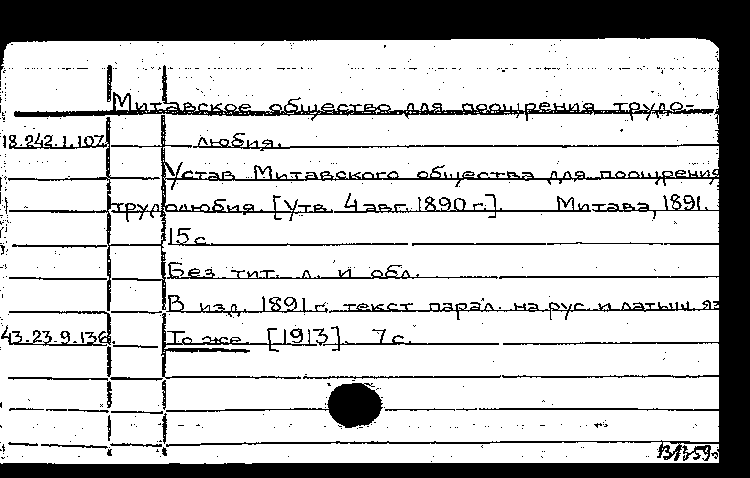 Митавское общество для поощрения трудо-
18.242.1.107 любия.
Устав Митавского общества для поощрения
трудолюбия. [Утв. 4 авг. 1890 г.]. Митава, 1891.
15 с.
Без тит. л. и обл.
В изд. 1891 г. текст парал. на рус. и латыш. яз
43.23.9.136. То же. [1913]. 7 с.